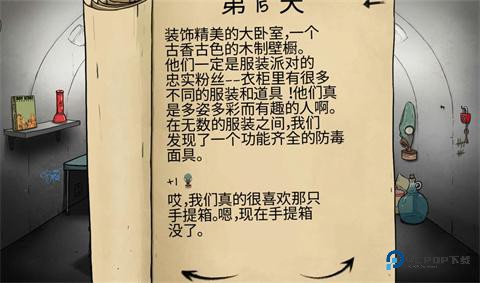 第 15 天
装饰精美的大卧室，一个
古香古色的木制壁橱。
他们一定是服装派对的
忠实粉丝--衣柜里有很多
不同的服装和道具！他们真
是多姿多彩而有趣的人啊。
在无数的服装之间，我们
发现了一个功能齐全的防毒
面具。
+1
哎，我们真的很喜欢那只
手提箱。嗯，现在手提箱
没了。
POP下载